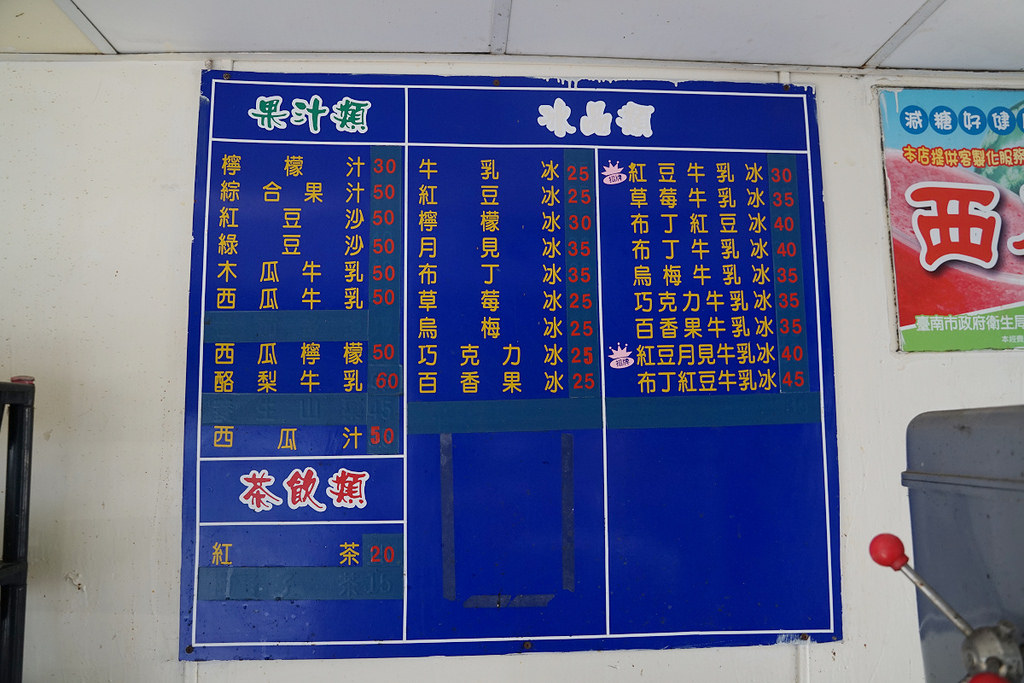 果汁類
檸檬汁 30
綜合果汁 50
紅豆沙 50
綠豆沙 50
木瓜牛乳 50
西瓜牛乳 50
西瓜檸檬 50
酪梨牛乳 60
西瓜汁 50
茶飲類
紅茶 20
冰品類
牛乳冰 25
紅豆冰 25
檸檬冰 30
月見冰 35
布丁冰 35
草莓冰 25
烏梅冰 25
巧克力冰 25
百香果冰 25
招牌 紅豆牛乳冰 30
草莓牛乳冰 35
布丁紅豆冰 40
布丁牛乳冰 40
烏梅牛乳冰 35
巧克力牛乳冰 35
百香果牛乳冰 35
招牌 紅豆月見牛乳冰 40
布丁紅豆牛乳冰 45
減糖好健
本店提供客製化服務
西
臺南市政府衛生局